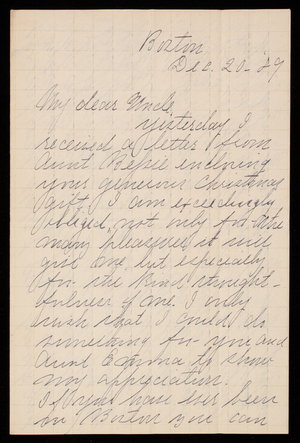 Boston
Dec. 20 - 89
My dear Uncle,
Yesterday I
received a letter from
Aunt Bessie enclosing
your generous Christmas
gift. I am exceedingly
obliged, not only for the
many pleasures it will
give me but especially
for the kind thought-
fulness of me. I only
wish that I could do
something for you and
Aunt Emma to show
my appreciation.
If you have ever been
in Boston you can